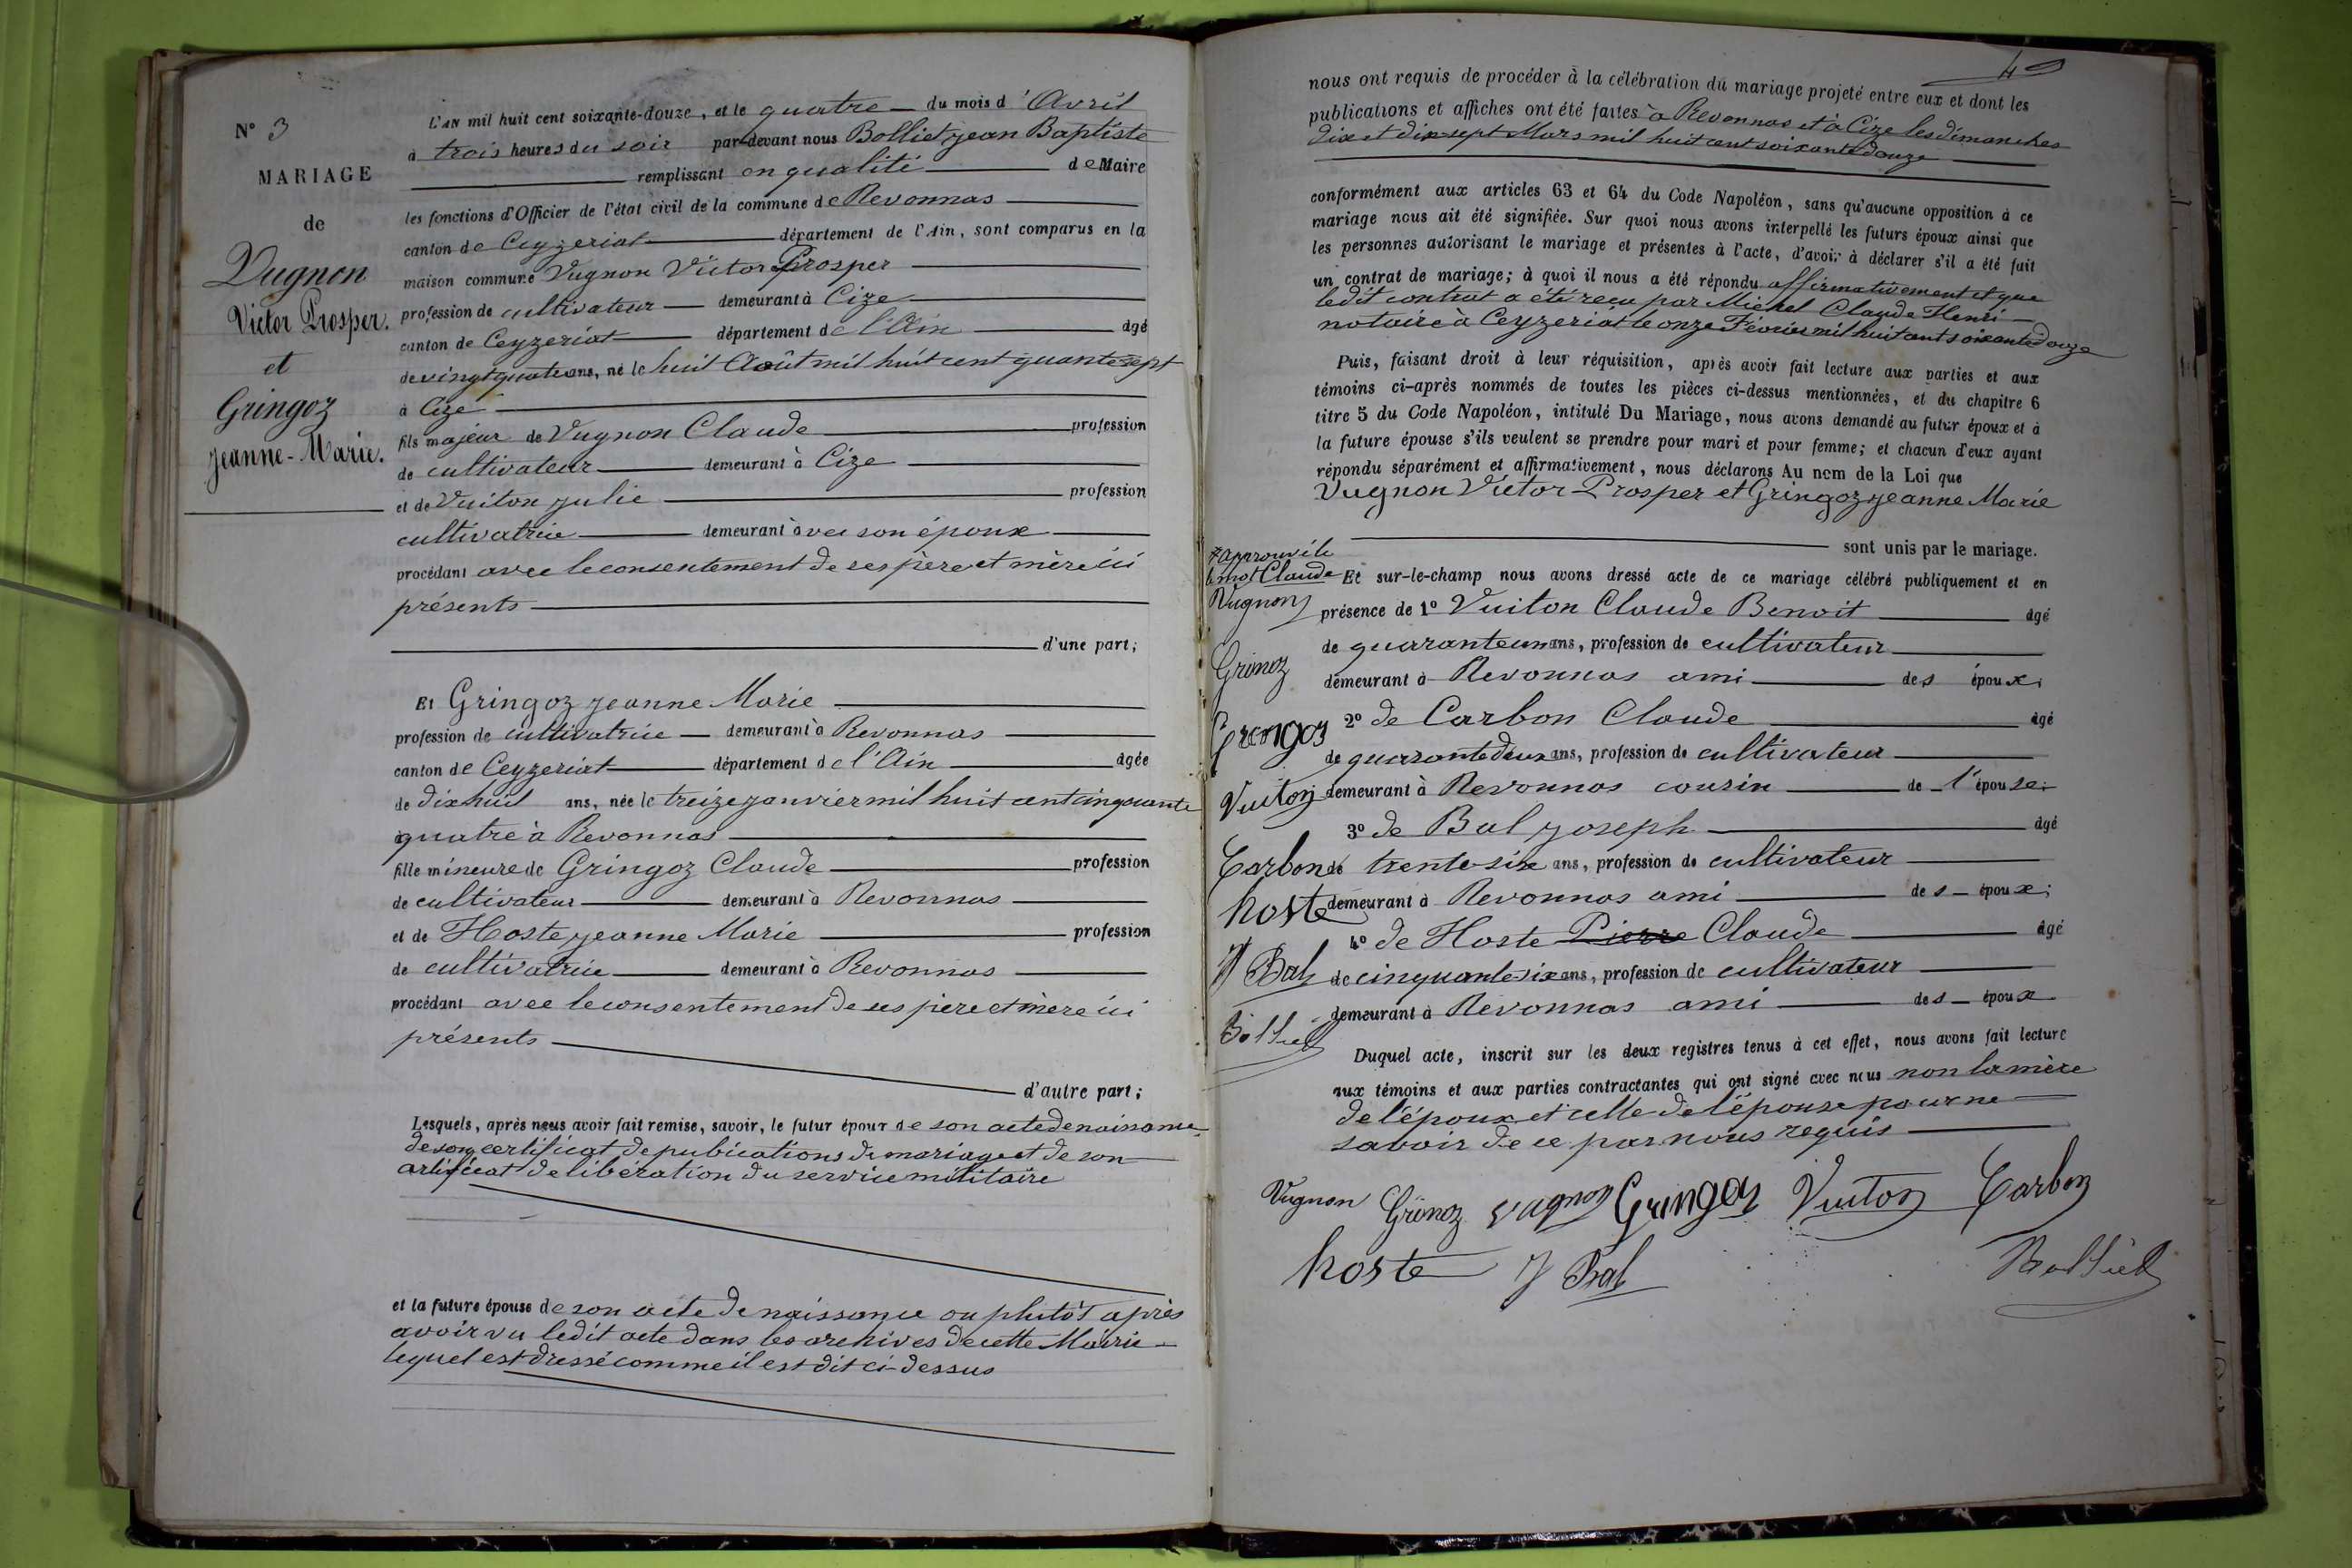 N° 3
MARIAGE
de
Vugnon
Victor Prosper.
et
Gringoz
Jeanne-Marie.
L'AN mil huit cent soixante-douze, et le quatre du mois d'Avril
à trois heures du soir par-devant nous Bolliet Jean Baptiste
remplissant en qualité de Maire
les fonctions d'Officier de l'état civil de la commune de Revonnas
canton de Ceyzeriat département de l'Ain, sont comparus en la
maison commune Vugnon Victor Prosper
profession de cultivateur demeurant à Cize
canton de Ceyzeriat département de l'Ain âgé
de vingt quatre ans, né le huit Août mil huit cent quante sept
à Cize
fils majeur de Vugnon Claude profession
de cultivateur demeurant à Cize
et de Vuiton Julie profession
cultivatrice demeurant avec son époux
procédant avec le consentement de ses père et mère ici
présents
d'une part;
Et Gringoz Jeanne Marie
profession de cultivatrice demeurant à Revonnas
canton de Ceyzeriat département de l'Ain âgée
de dix huit ans, née le treize janvier mil huit cent cinquante
quatre à Revonnas
fille mineure de Gringoz Claude profession
de cultivateur demeurant à Revonnas
et de Hoste Jeanne Marie profession
de cultivatrice demeurant à Revonnas
procédant avec le consentement de ses père et mère ici
présents
d'autre part;
Lesquels, après nous avoir fait remise, savoir, le futur époux de son acte de naissance,
de son certificat de publications de mariage et de son
certificat de libération du service militaire
et la future épouse de son acte de naissance ou plutôt après
avoir vu ledit acte dans les archives de cette Mairie
lequel est dressé comme il est dit ci-dessus
49
nous ont requis de procéder à la célébration du mariage projeté entre eux et dont les
publications et affiches ont été faites à Revonnas et à Cize les dimanches
dix et dix sept Mars mil huit cent soixante douze
conformément aux articles 63 et 64 du Code Napoléon, sans qu'aucune opposition à ce
mariage nous ait été signifiée. Sur quoi nous avons interpellé les futurs époux ainsi que
les personnes autorisant le mariage et présentes à l'acte, d'avoir à déclarer s'il a été fait
un contrat de mariage; à quoi il nous a été répondu affirmativement et que
ledit contrat a été reçu par Michel Claude Henri
notaire à Ceyzeriat le onze Février mil huit cent soixante douze
Puis, faisant droit à leur réquisition, après avoir fait lecture aux parties et aux
témoins ci-après nommés de toutes les pièces ci-dessus mentionnées, et du chapitre 6
titre 5 du Code Napoléon, intitulé Du Mariage, nous avons demandé au futur époux et à
la future épouse s'ils veulent se prendre pour mari et pour femme; et chacun d'eux ayant
répondu séparément et affirmativement, nous déclarons Au nom de la Loi que
Vugnon Victor Prosper et Gringoz Jeanne Marie
sont unis par le mariage.
approuvé le
mot Claude
Vugnon
Grinoz
Gringoz
Vuiton
Carbon
hoste
J Bal
Bolliet
Et sur-le-champ nous avons dressé acte de ce mariage célébré publiquement et en
présence de 1° Vuiton Claude Benoit âgé
de quarante un ans, profession de cultivateur
demeurant à Revonnas ami des époux;
2° de Carbon Claude âgé
de quarante deux ans, profession de cultivateur
demeurant à Revonnas cousin de l'épouse;
3° de Bal Joseph âgé
de trente-six ans, profession de cultivateur
demeurant à Revonnas ami des époux;
4° de Hoste Pierre Claude âgé
de cinquante-six ans, profession de cultivateur
demeurant à Revonnas ami des époux
Duquel acte, inscrit sur les deux registres tenus à cet effet, nous avons fait lecture
aux témoins et aux parties contractantes qui ont signé avec nous non la mère
de l'époux et celle de l'épouse pour ne
savoir de ce par nous requis
Vugnon Grinoz Vugnon Gringoz Vuiton Carbon
hoste J Bal Bolliet